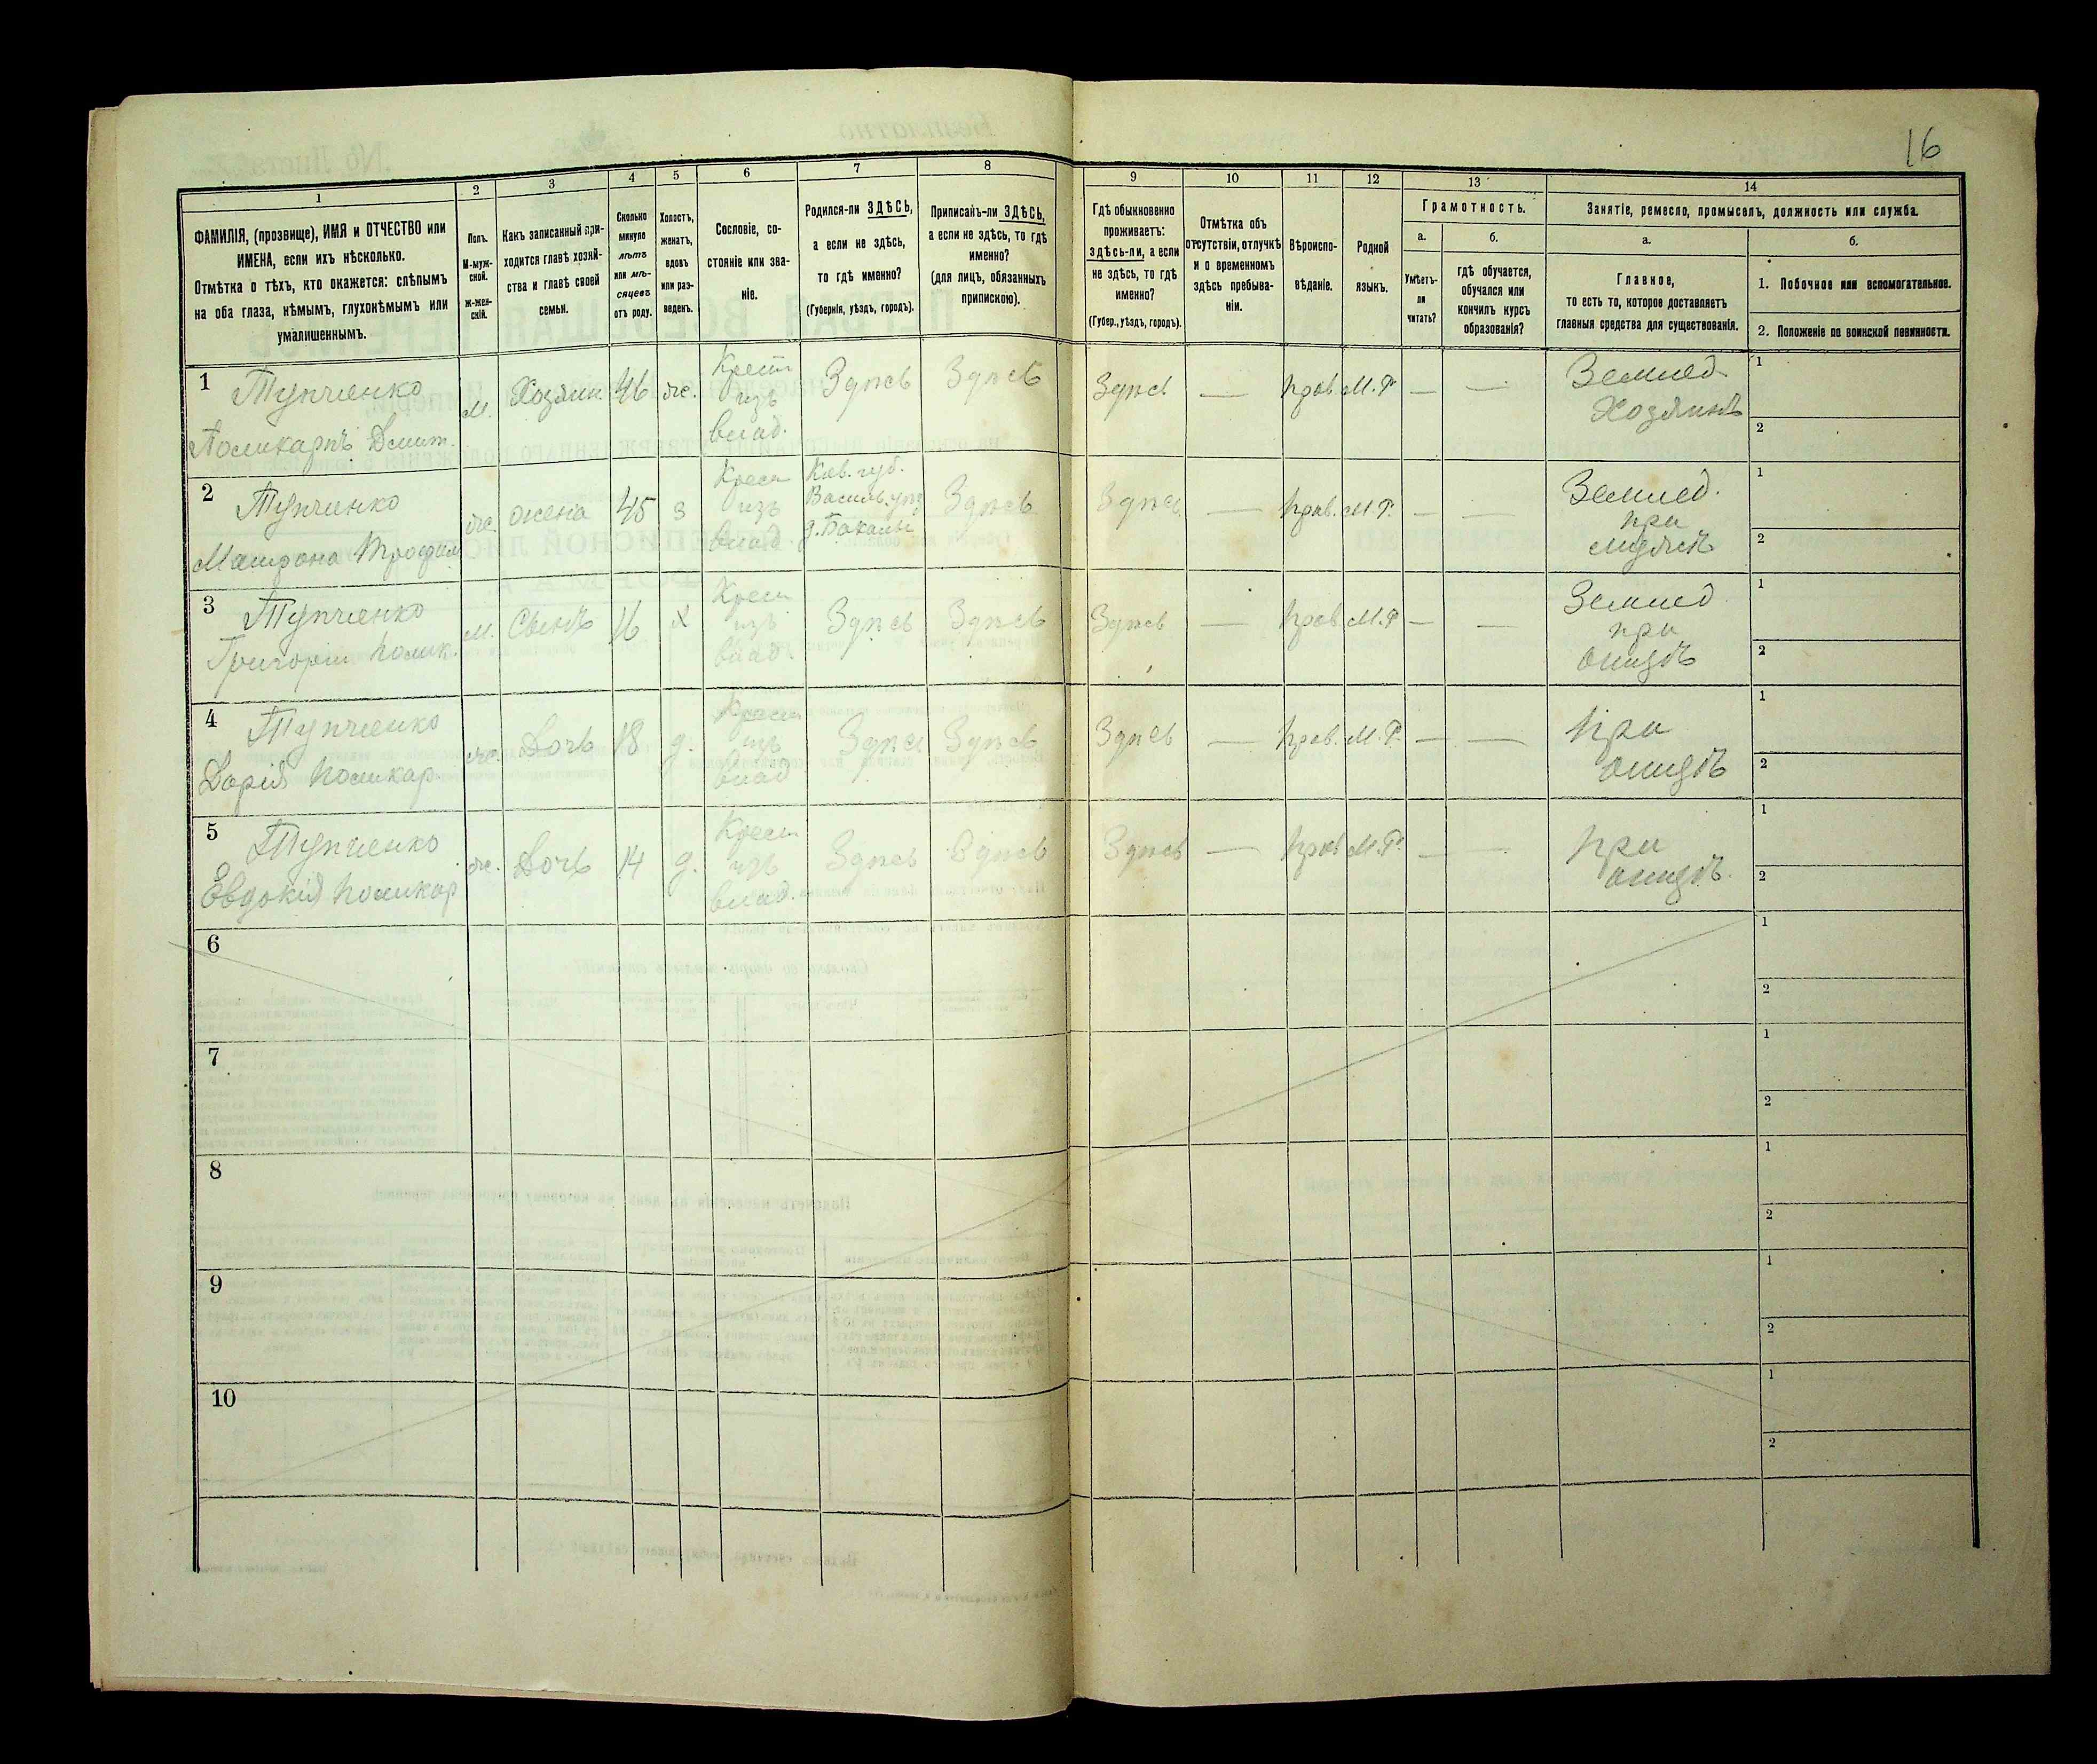 16
1
2
3
4
5
6
7
8
9
10
11
12
13
14
ФАМИЛІЯ, (прозвище), ИМЯ и ОТЧЕСТВО или
ИМЕНА, если ихъ нѣсколько.
Отмѣтка о тѣхъ, кто окажется: слѣпымъ
на оба глаза, нѣмымъ, глухонѣмымъ или
умалишеннымъ.
Полъ.
М-муж-
ской.
ж-жен-
скій.
Какъ записанный при-
ходится главѣ хозяй-
ства и главѣ своей
семьи.
Сколько
минуло
лѣтъ
или мѣ-
сяцевъ
отъ роду.
Холостъ,
женатъ,
вдовъ
или раз-
веденъ.
Сословіе, со-
стояніе или зва-
ніе.
Родился-ли ЗДѢСЬ,
а если не здѣсь,
то гдѣ именно?
(Губернія, уѣздъ, городъ).
Приписанъ-ли ЗДѢСЬ,
а если не здѣсь, то гдѣ
именно?
(для лицъ, обязанныхъ
припискою).
Гдѣ обыкновенно
проживаетъ:
здѣсь-ли, а если
не здѣсь, то гдѣ
именно?
(Губер., уѣздъ, городъ).
Отмѣтка объ
отсутствіи, отлучкѣ
и о временномъ
здѣсь пребыва-
ніи.
Вѣроиспо-
вѣданіе.
Родной
языкъ.
Грамотность.
а.
Умѣетъ-
ли
читать?
б.
гдѣ обучается,
обучался или
кончилъ курсъ
образованія?
Занятіе, ремесло, промыселъ, должность или служба.
а.
Главное,
то есть то, которое доставляетъ
главныя средства для существованія.
б.
1. Побочное или вспомогательное.
2. Положеніе по воинской повинности.
1 Тупченко
Поликарпъ Дмит.
м. Хозяин 46 ж.
Крест
изъ
влад.
Здѣсь Здѣсь Здѣсь — прав. М.Р. — —
Землед
Хозяинъ
1
2
2 Тупченко
Матрона Трофим
ж. жена 45 з
Крест
изъ
влад.
Киев. губ.
Васильк. уѣз
Здѣсь Здѣсь — прав. М.Р. — —
Землед.
при
мужѣ
1
2
3 Тупченко
Григорій Полик.
м. Сынъ 16 х
Крест
изъ
влад.
Здѣсь Здѣсь Здѣсь — прав М.Р — —
Землед
при
отцѣ
1
2
4 Тупченко
Дарія Поликар.
ж. Дочь 18 д.
Крест
изъ
влад
Здѣсь Здѣсь Здѣсь — прав. М.Р. — —
при
отцѣ
1
2
5 Тупченко
Евдокія Поликар
ж. Дочь 14 д.
Крест
изъ
влад.
Здѣсь Здѣсь Здѣсь — прав М.Р. — —
при
отцѣ.
1
2
6
1
2
7
1
2
8
1
2
9
1
2
10
1
2